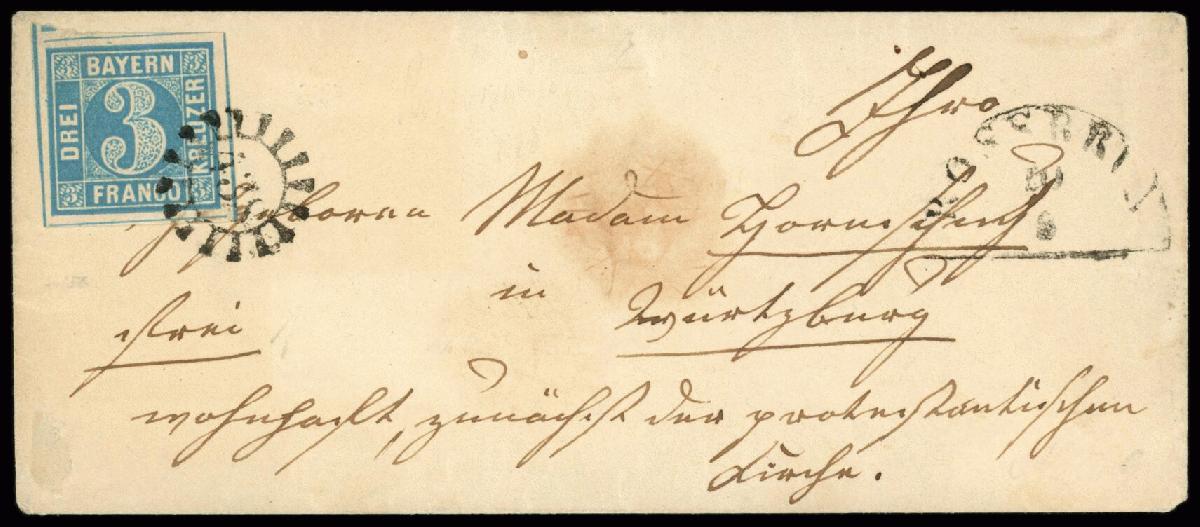 BAYERN
DREI 3 KREUZER
FRANCO
Ihro
10
8
geboren Madam
in
frei Würtzburg
wohnhaft, zunächst der protestantischen
Kirche.